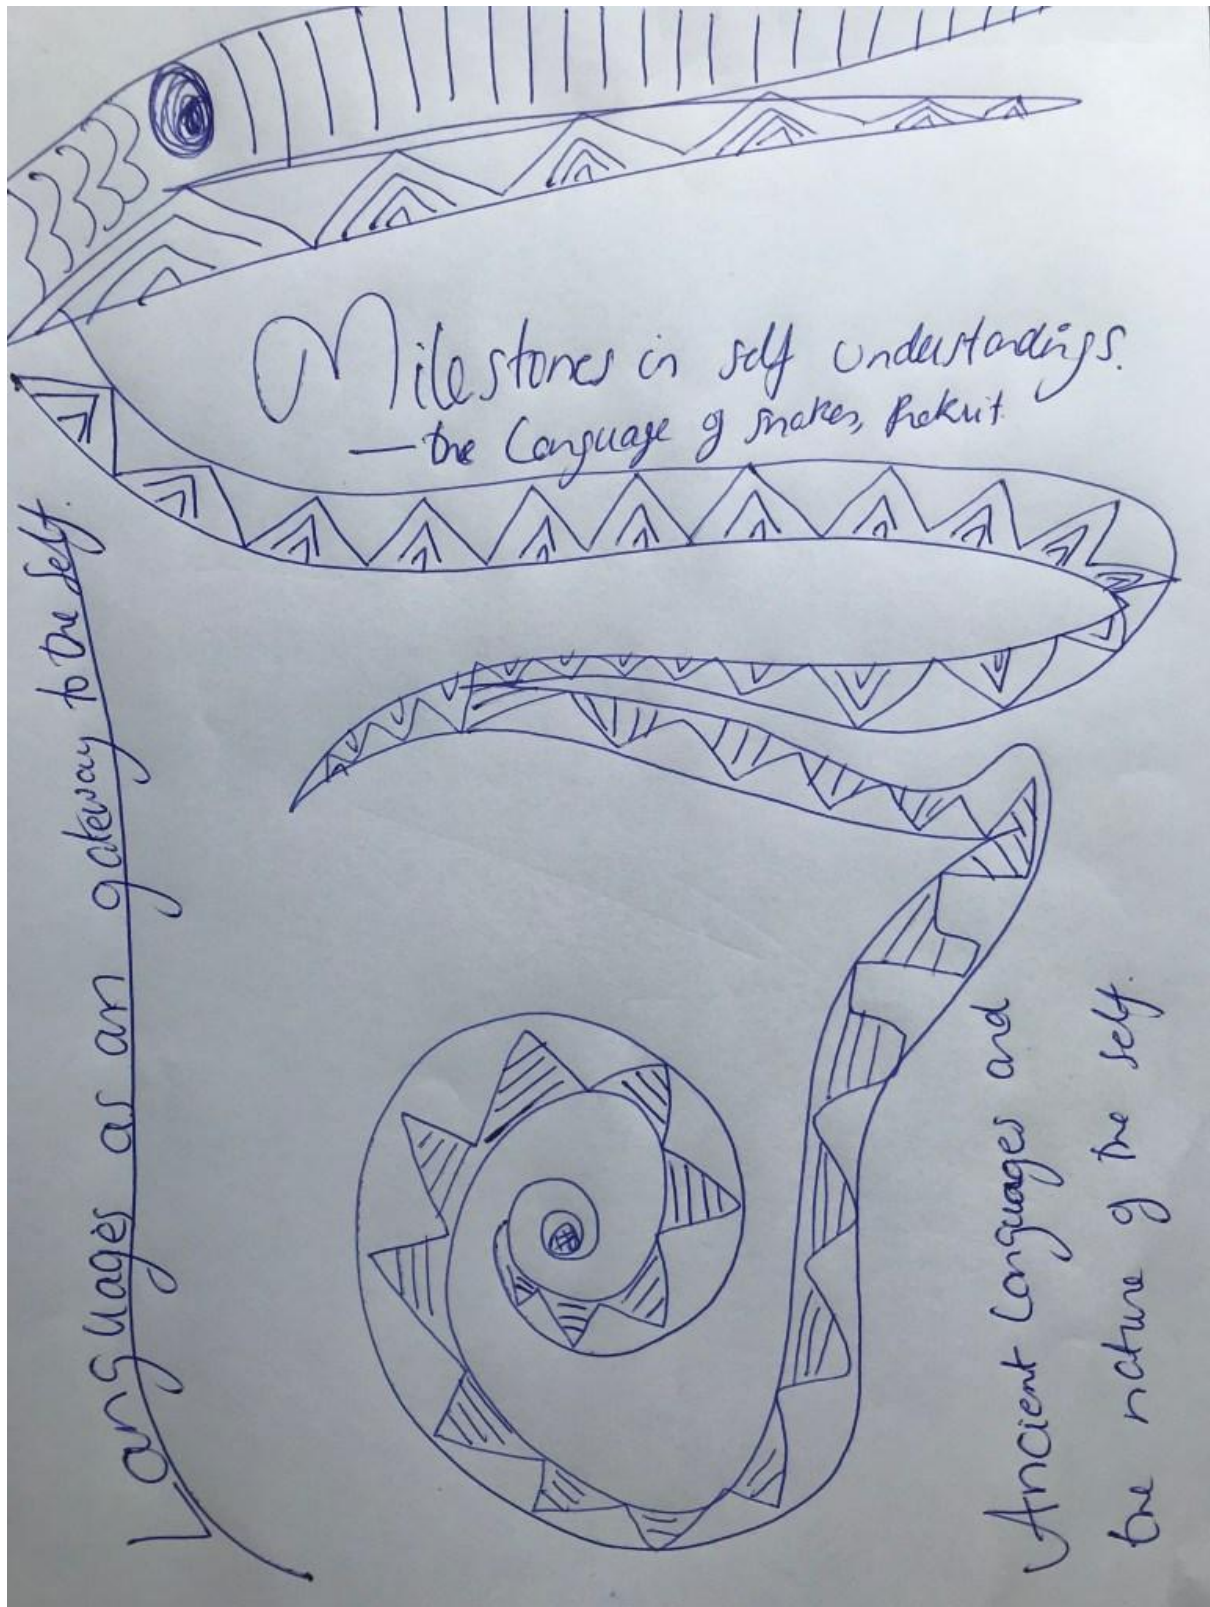 Milestones in self understandings.
— the Language of snakes, Prakrit.
Languages as an gateway to the self.
Ancient Languages and
the nature of the self.